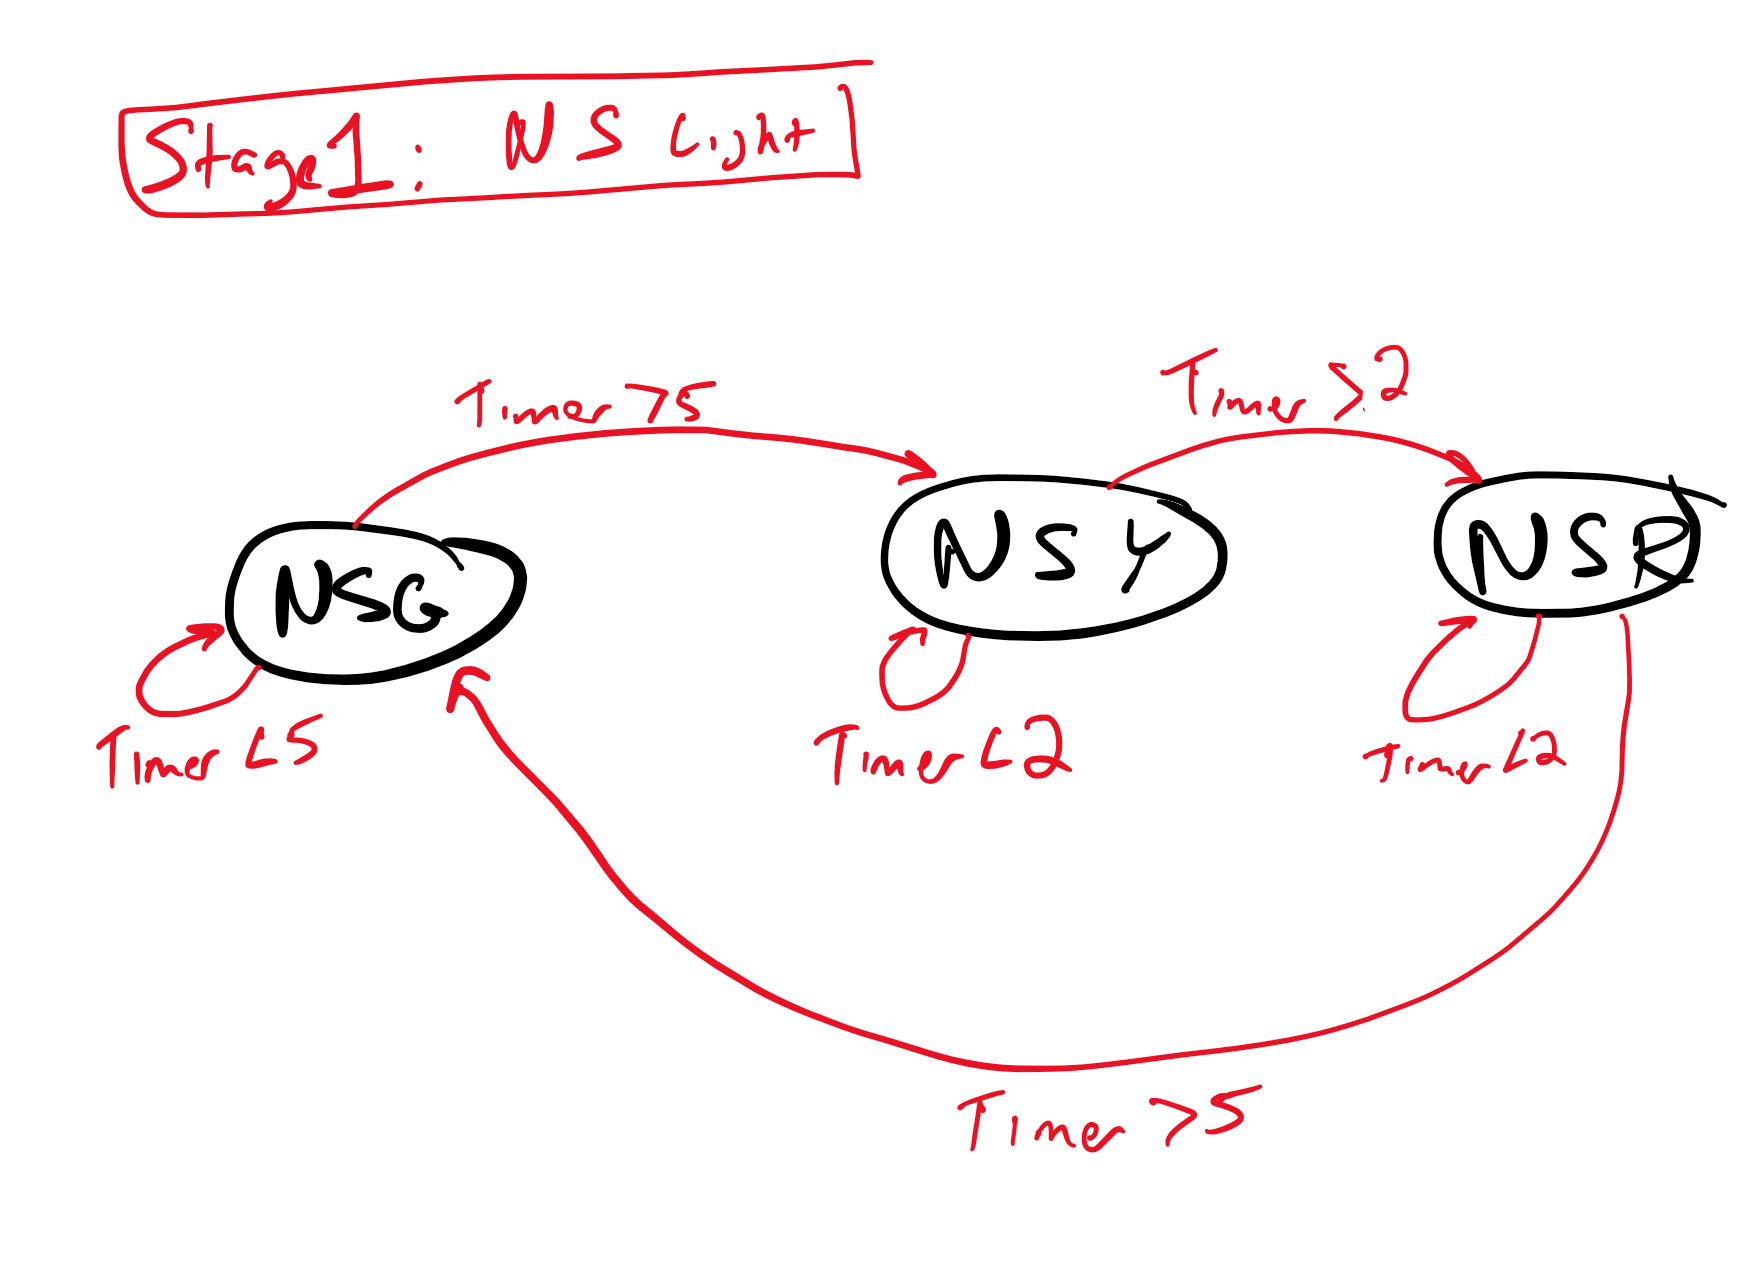 Stage1: NS Light
Timer >5
Timer >2
NSG
NSY
NSR
Timer <5
Timer <2
Timer <2
Timer >5